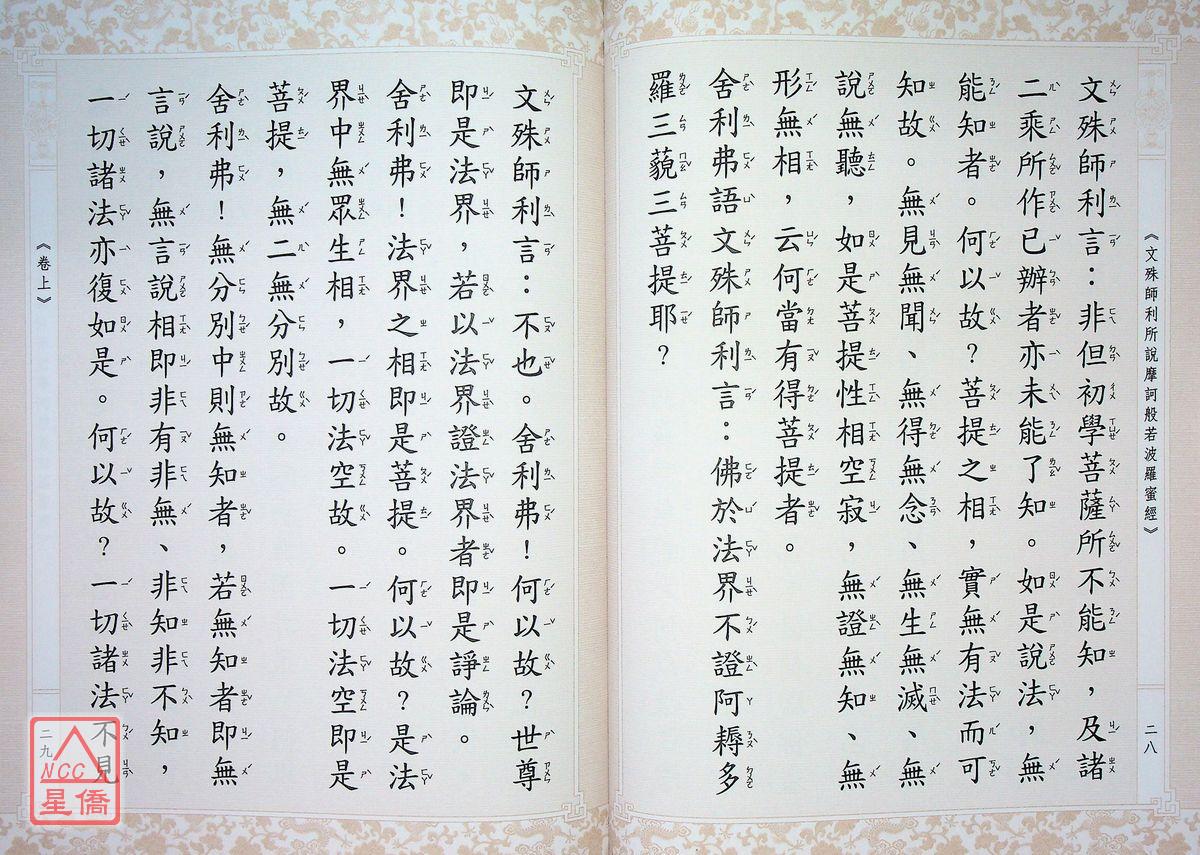 《文殊師利所說摩訶般若波羅蜜經》
二八
文殊師利言：非但初學菩薩所不能知，及諸
二乘所作已辦者亦未能了知。如是說法，無
能知者。何以故？菩提之相，實無有法而可
知故。無見無聞、無得無念、無生無滅、無
說無聽，如是菩提性相空寂，無證無知、無
形無相，云何當有得菩提者。
舍利弗語文殊師利言：佛於法界不證阿耨多
羅三藐三菩提耶？
文殊師利言：不也。舍利弗！何以故？世尊
即是法界，若以法界證法界者即是諍論。
舍利弗！法界之相即是菩提。何以故？是法
界中無眾生相，一切法空故。一切法空即是
菩提，無二無分別故。
舍利弗！無分別中則無知者，若無知者即無
言說，無言說相即非有非無、非知非不知，
一切諸法亦復如是。何以故？一切諸法不見
《卷上》
二九
NCC
星僑